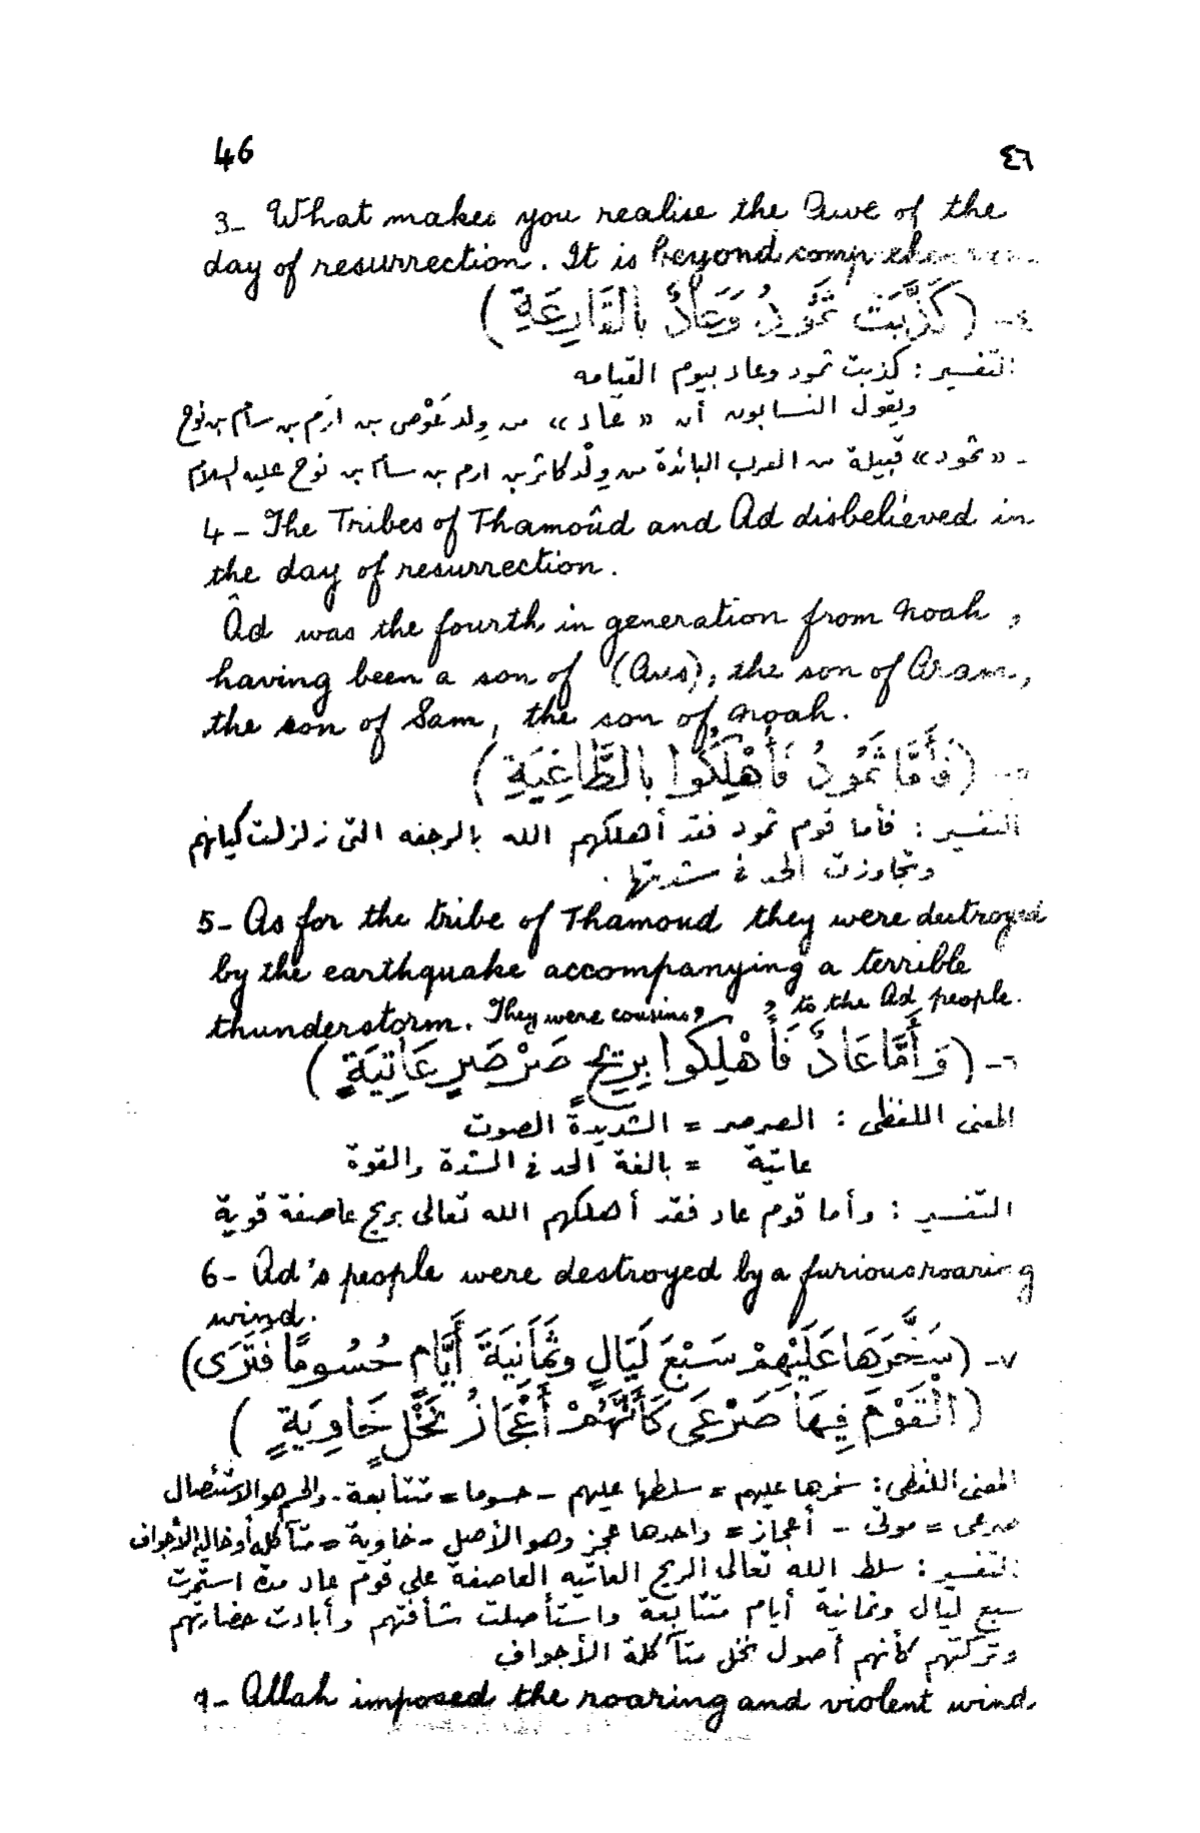 46 ٤٦
3- What makes you realise the Awe of the
day of resurrection. It is beyond comprehension.
٤- (كَذَّبَتْ ثَمُودُ وَعَادٌ بِالْقَارِعَةِ)
التفسير : كذبت ثمود وعاد بيوم القيامه
ويقول النسابون أن «عَاد» من وِلد عَوْص بن ارَم بن سام بن نوح
- «ثمود» قبيلة من العرب البائدة من وِلْد كاثر بن ارم بن سام بن نوح عليه السلام
4 - The Tribes of Thamoûd and Ad disbelieved in
the day of resurrection.
Âd was the fourth in generation from Noah ,
having been a son of (Aus), the son of Aram,
the son of Sam, the son of Noah.
٥- (فَأَمَّا ثَمُودُ فَأُهْلِكُوا بِالطَّاغِيَةِ)
التفسير : فأما قوم ثمود فقد أهلكهم الله بالرجفه التى زلزلت كيانهم
وتجاوزت الحد فى شدتها .
5- As for the tribe of Thamoud they were destroyed
by the earthquake accompanying a terrible
thunderstorm. They were cousins, , to the Ad people.
٦- (وَأَمَّا عَادٌ فَأُهْلِكُوا بِرِيحٍ صَرْصَرٍ عَاتِيَةٍ)
المعنى اللفظى : الصرصر = الشديدة الصوت
عاتية = بالغة الحد فى الشدة والقوة
التفسير : وأما قوم عاد فقد أهلكهم الله تعالى بريح عاصفة قوية
6- Ad's people were destroyed by a furious roaring
wind.
٧- (سَخَّرَهَا عَلَيْهِمْ سَبْعَ لَيَالٍ وَثَمَانِيَةَ أَيَّامٍ حُسُومًا فَتَرَى)
(الْقَوْمَ فِيهَا صَرْعَى كَأَنَّهُمْ أَعْجَازُ نَخْلٍ خَاوِيَةٍ)
المعنى اللفظى : سخرها عليهم = سلطها عليهم - حسوما = متتابعة - والحسم هو الاستئصال
صرعى = موتى - أعجاز = واحدها عجز وهو الأصل - خاوية = متآكله أو خالية الأجواف
التفسير : سلط الله تعالى الريح العاتيه العاصفة على قوم عاد مدة استمرت
سبع ليال وثمانية أيام متتابعة واستأصلت شأفتهم وأبادت حضارتهم
وتركتهم كأنهم أصول نخل متآكلة الأجواف
7- Allah imposed the roaring and violent wind